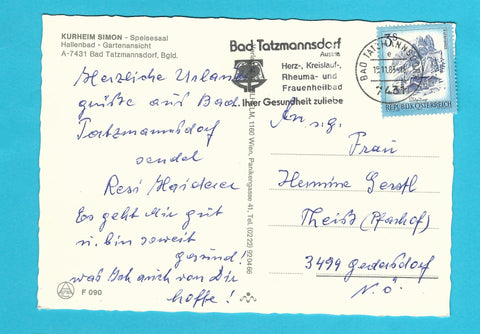 KURHEIM SIMON - Speisesaal
Hallenbad - Gartenansicht
A-7431 Bad Tatzmannsdorf, Bgld.
Herzliche Urlaubs
grüße aus Bad.
Tatzmannsdorf
sendet
Resi Haiderer
Es geht Mir gut
u. bin soweit
gesund!
was Ich auch von Dir
hoffe!
F 090
1160 Wien, Panikengasse 41, Tel. (0222) 92 04 66
Bad Tatzmannsdorf
Austria
Herz-, Kreislauf-,
Rheuma- und
Frauenheilbad
Ihrer Gesundheit zuliebe
BAD TATZMANNSDORF
7431
3S
REPUBLIK ÖSTERREICH
An s.g.
Frau
Hermine Gerstl
Theiß (Pfarrhof)
3499 Gedersdorf
N.Ö.